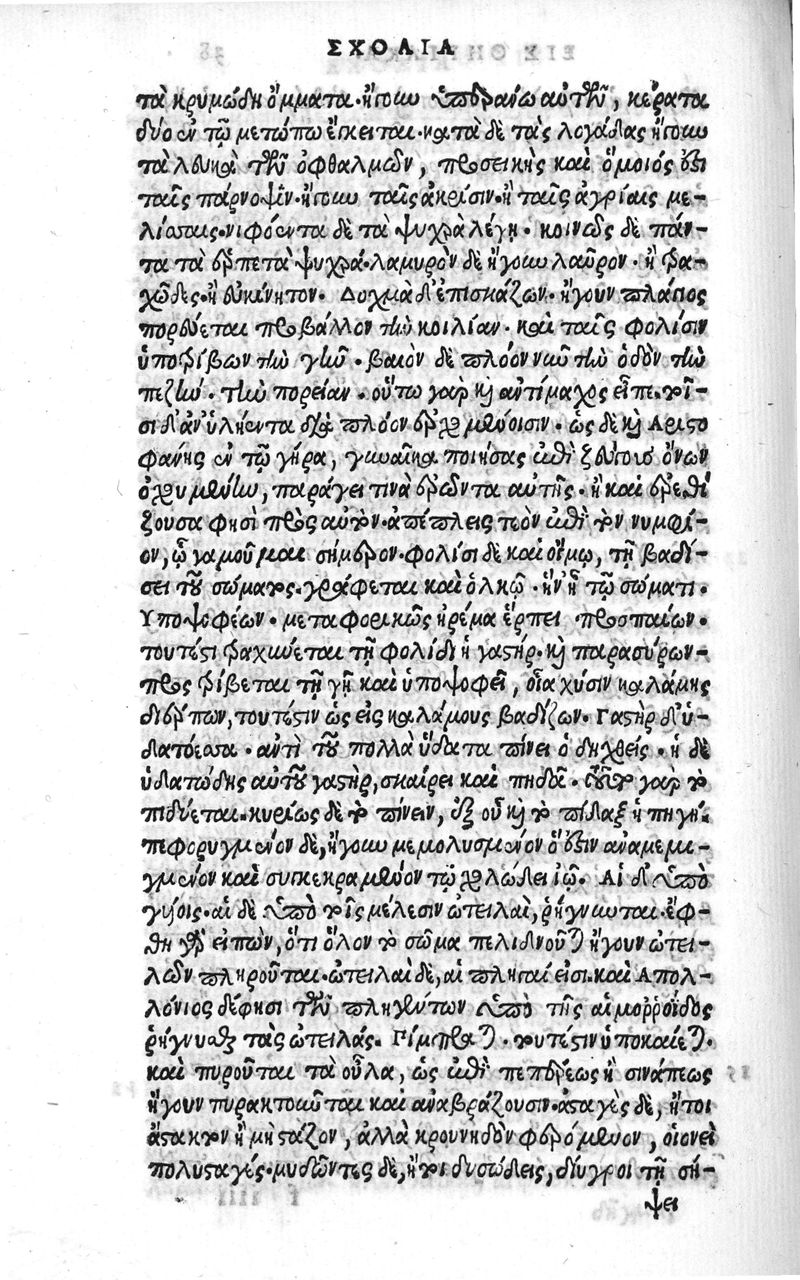 ΣΧΟΛΙΑ
τὰ κρυμώδη ὄμματα· ἤγουν ὑποράνω αὐτῶν, κέρατα
δύο ἐν τῷ μετώπῳ ἔγκειται· κατὰ δὲ τὰς λογάδας ἤγουν
τὰ λευκὰ τῶν ὀφθαλμῶν, προσεικὴς καὶ ὅμοιός ἐστι
ταῖς πάρνοψιν· ἤγουν ταῖς ἀκρίσιν· ἢ ταῖς ἀγρίαις με-
λίσσαις· νιφόεντα δὲ τὰ ψυχρὰ λέγει· κοινῶς δὲ πάν-
τα τὰ ἑρπετὰ ψυχρά· λαμυρὸν δὲ ἤγουν λαῦρον· ἢ τρα-
χῶδες· ἢ εὐκίνητον· Δοχμὰ δ' ἐπισκάζων· ἤγουν πλάγιος
πορεύεται προβάλλον τὴν κοιλίαν· καὶ ταῖς φολίσιν
ὑποτρίβων τὴν γῆν· βαιὸν δὲ πλόον νῦν τὴν ὁδὸν τὴν
πεζὴν· τὴν πορείαν· οὕτω γὰρ καὶ ἀντίμαχος εἶπε· τοῖ-
σι δ' ἀν' ὑλήεντα διὰ πλόον ἐρχομένοισιν· ὡς δὲ καὶ Αριστο
φάνης ἐν τῷ γήρᾳ, γυναῖκα ποιήσας ἐπὶ ζεύγους ὄνων
ὀχουμένην, παράγει τινὰ ἐρῶντα αὐτῆς· ἢ καὶ ἐρεθί
ζουσα φησὶ πρὸς αὐτὸν· ἀπέπλεις τεὸν ἐπὶ τὸν νυμφί-
ον, ᾧ γαμοῦμαι σήμερον· φολίσι δὲ καὶ οἴμῳ, τῇ βαδί-
σει τοῦ σώματος· γράφεται καὶ ὁλκῷ· ἤγουν τῷ σώματι·
Υποψοφέων· μεταφορικῶς ἠρέμα ἕρπει προσπαίων·
τουτέστι τραχύνεται τῇ φολίδι ἡ γαστήρ· καὶ παρασύρων-
προς τρίβεται τῇ γῇ καὶ ὑποψοφεῖ, οἷα χύσιν καλάμης
διέρπων, τουτέστιν ὡς εἰς καλάμους βαδίζων· Γαστὴρ δ' ὑ-
δατόεσσα· ἀντὶ τοῦ πολλὰ ὕδατα πίνει ὁ δηχθείς· ἡ δὲ
ὑδατώδης αὐτοῦ γαστὴρ, σκαίρει καὶ πηδᾶ· τοῦτο γὰρ τὸ
πιδύεται· κυρίως δὲ τὸ πίνειν, ἐξ οὗ καὶ τὸ πίδαξ ἡ πηγή·
πεφορυγμένον δὲ, ἤγουν μεμολυσμένον ὅ ἐστιν ἀναμεμι-
γμένον καὶ συγκεκραμένον τῷ χλώδει ἰῷ. Αἱ δ' ὑπὸ
γυίοις· αἱ δὲ ὑπὸ τοῖς μέλεσιν ὠτειλαὶ, ῥήγνυνται· ἔφ-
θη γὰρ εἰπὼν, ὅτι ὅλον τὸ σῶμα πελιδνοῦται ἤγουν ὠτει-
λῶν πληροῦται· ὠτειλαὶ δὲ, αἱ πληγαί εἰσι· καὶ Απολ-
λόνιος δέ φησι τῶν πληγέντων ὑπὸ τῆς αἱμορροίδος
ῥήγνυσθαι τὰς ὠτειλάς. Γίμπραται· τουτέστιν ὑποκαίεται·
καὶ πυροῦται τὰ οὖλα, ὡς ἐπὶ πεπέρεως ἢ σινάπεως
ἤγουν πυρακτοῦνται καὶ ἀναβράζουσιν· ἀσταγὲς δὲ, ἤτοι
ἄστακτον ἢ μὴ στάζον, ἀλλὰ κρουνηδὸν φερόμενον, οἱονεὶ
πολυσταγές· μυδῶντες δὲ, ἤτοι δυσώδεις, δίυγροι τῇ σή-
ψει